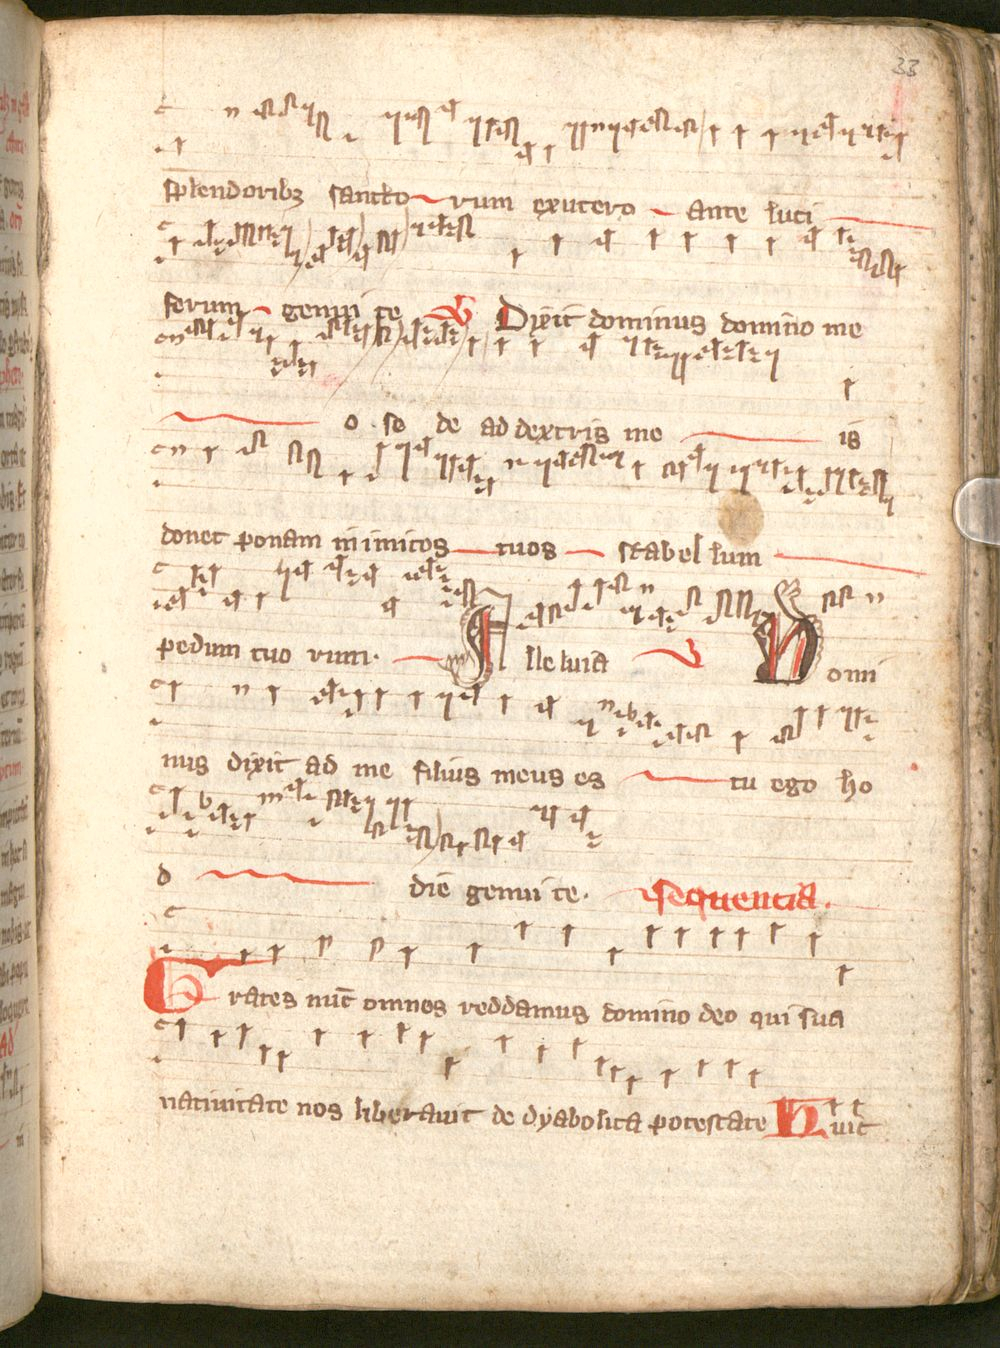 33
splendoribꝫ sancto rum exutero ante luci
ferum genui te V Dixit dominus domino me
o se de ad dextris me is
donec ponam inimicos tuos scabel lum
pedum tuo rum. Alleluia V Domi
nus dixit ad me filius meus es tu ego ho
d die genui te. Sequencia.
Grates nūc omnes reddamus domino deo qui sua
natiuitate nos liberauit de dyabolica potestate Huic